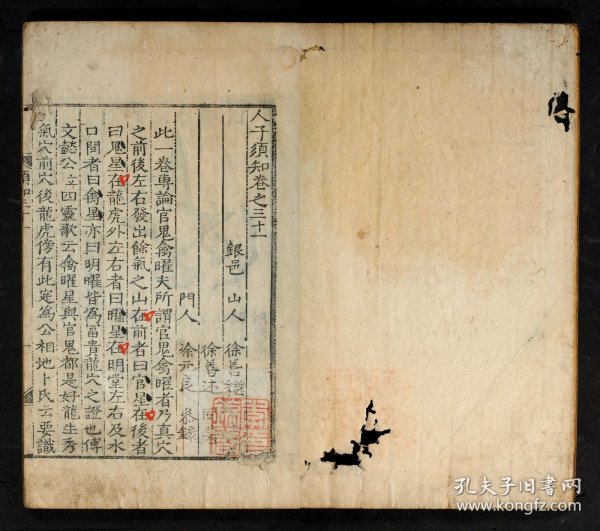 人子須知卷之三十一
銀邑 山人 徐善繼
徐善述 同著
門人 徐 參錄
此一卷專論官鬼禽曜夫所謂官鬼禽曜者乃真穴
之前後左右發出餘氣之山在前者曰官星在後者
曰鬼星在龍虎外左右者曰曜星在明堂左右及水
口間者曰禽星亦曰明曜皆為富貴龍穴之證也傳
文懿公 四靈歌云禽曜星與官鬼都是好龍生秀
氣穴前穴後龍虎傍有此定為公相地卜氏云要識
孔夫子旧书网
www.kongfz.com